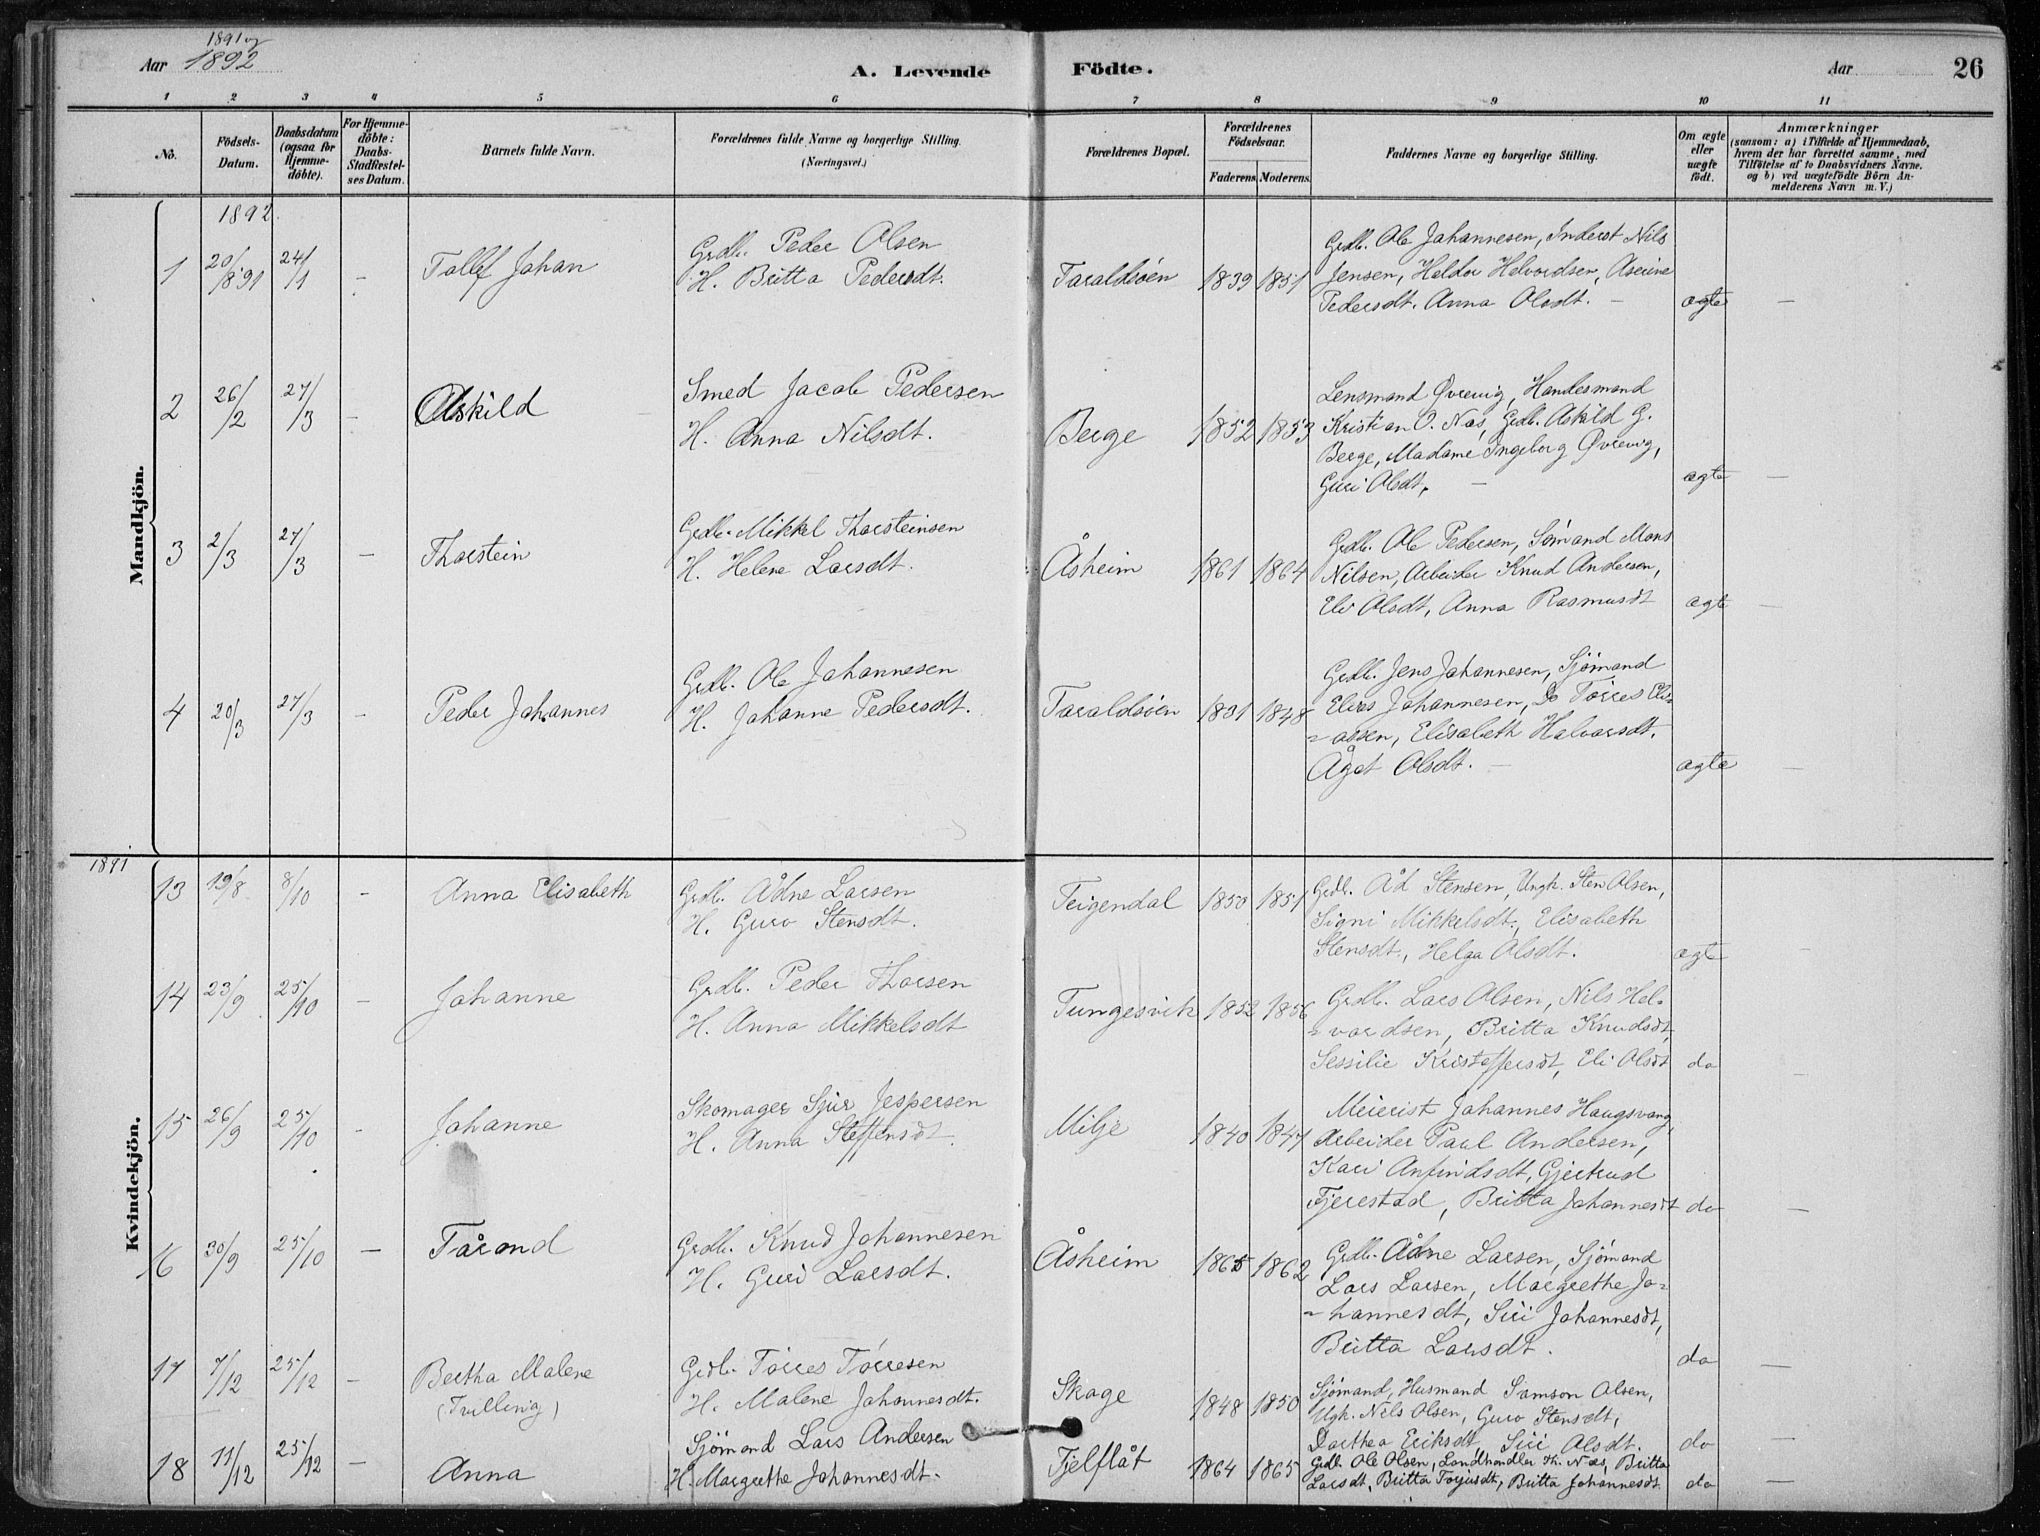 1891 og
Aar 1892
A. Levende
Födte.
Aar
26
1 2 3 4 5 6 7 8 9 10 11
No.
Födsels-
Datum.
Daabsdatum
(ogsaa for
Hjemme-
döbte).
For Hjemme-
döbte:
Daabs-
Stadfæstel-
ses Datum.
Barnets fulde Navn.
Forældrenes fulde Navne og borgerlige Stilling.
(Næringsvei.)
Forældrenes Bopæl.
Forældrenes
Födselsaar.
Faderens. Moderens.
Faddernes Navne og borgerlige Stilling.
Om ægte
eller
uægte
födt.
Anmærkninger
(saasom: a) i Tilfælde af Hjemmedaab,
hvem der har forrettet samme, med
Tilföielse af to Daabsvidners Navne.
og b) ved uægtefödte Börn An-
melderens Navn m. V.)
Mandkjön.
1892.
1 20/8 91 24/1 - Tollef Johan
Grdb. Peder Olsen
H. Britta Pedersdt.
Taraldsöen 1839 1851
Grdb. Ole Johannesen, Inderst Nils
Jensen, Haldor Helvordsen, Aserine
Pedersdt. Anna Olsdt. -
ægte -
2 26/2 27/3 - Askild
Smed Jacob Pedersen
H. Anna Nilsdt.
Berge 1852 1853
Lensmand Øvrevig, Handesmand
Kristian O. Næs, Grdb. Askild G.
Berge, Madame Ingeborg Øvrevig,
Guri Olsdt. -
ægte -
3 2/3 27/3 - Thorstein
Grdb. Mikkel Thorsteinsen
H. Helene Larsdt.
Åsheim 1861 1864
Grdb. Ole Pedersen, Sömand Mons
Nilsen, Arbeider Knud Andersen,
Eli Olsdt, Anna Rasmusdt
ægte -
4 20/3 27/3 - Peder Johannes
Grdb. Ole Johannesen
H. Johanne Pedersdt.
Taraldsöen 1831 1848
Grdb. Jens Johannesen, Sjömand
Elias Johannesen, Do Törres Eli-
=assen, Elisabeth Halvorsdt.
Åget Olsdt. -
ægte -
Kvindekjön.
1891
13 19/8 8/10 - Anna Elisabeth
Grdb. Ådne Larsen
H. Guro Stensdt.
Teigendal 1850 1851
Grdb. Åd Stensen, Ungk. Sten Olsen,
Signi Mikkelsdt, Elisabeth
Stensdt., Helga Olsdt.
ægte -
14 23/9 25/10 - Johanne
Grdb. Peder Thorsen
H. Anna Mikkelsdt
Tungesvik 1852 1856
Grdb. Lars Olsen, Nils Hel-
=vordsen, Britta Knudsdt,
Sessilie Kristoffersdt, Eli Olsdt
do -
15 26/9 25/10 - Johanne
Skomager Sjur Jespersen
H. Anna Steffensdt.
Milje 1840 1847
Meierist Johannes Haugsvang,
Arbeider Paul Andersen,
Kari Anfindsdt, Gjertrud
Fjerestad, Britta Johannesdt
do -
16 30/9 25/10 - Tårand
Grdb. Knud Johannesen
H. Guri Larsdt.
Åsheim 1865 1862
Grdb. Ådne Larsen, Sjömand
Lars Larsen, Margrethe Jo-
=hannesdt, Siri Johannesdt,
Britta Larsdt.
do -
17 7/12 25/12 - Bertha Malene
(Tvilling)
Grdb. Törres Törresen
H. Malene Johannesdt.
Skage 1848 1850
Sjömand, Husmand Samson Olsen,
Ugk. Nels Olsen, Guro Stensdt,
Dorthea Eriksdt, Siri Olsdt.
do -
18 11/12 25/12 - Anna
Sjömand Lars Andersen
H. Margrethe Johannesdt.
Fjelflåt 1864 1865
Grdb. Ole Olsen, Landhandler Th. Næs, Britta
Larsdt, Britta Torjusdt, Britta Johannesdt
do -